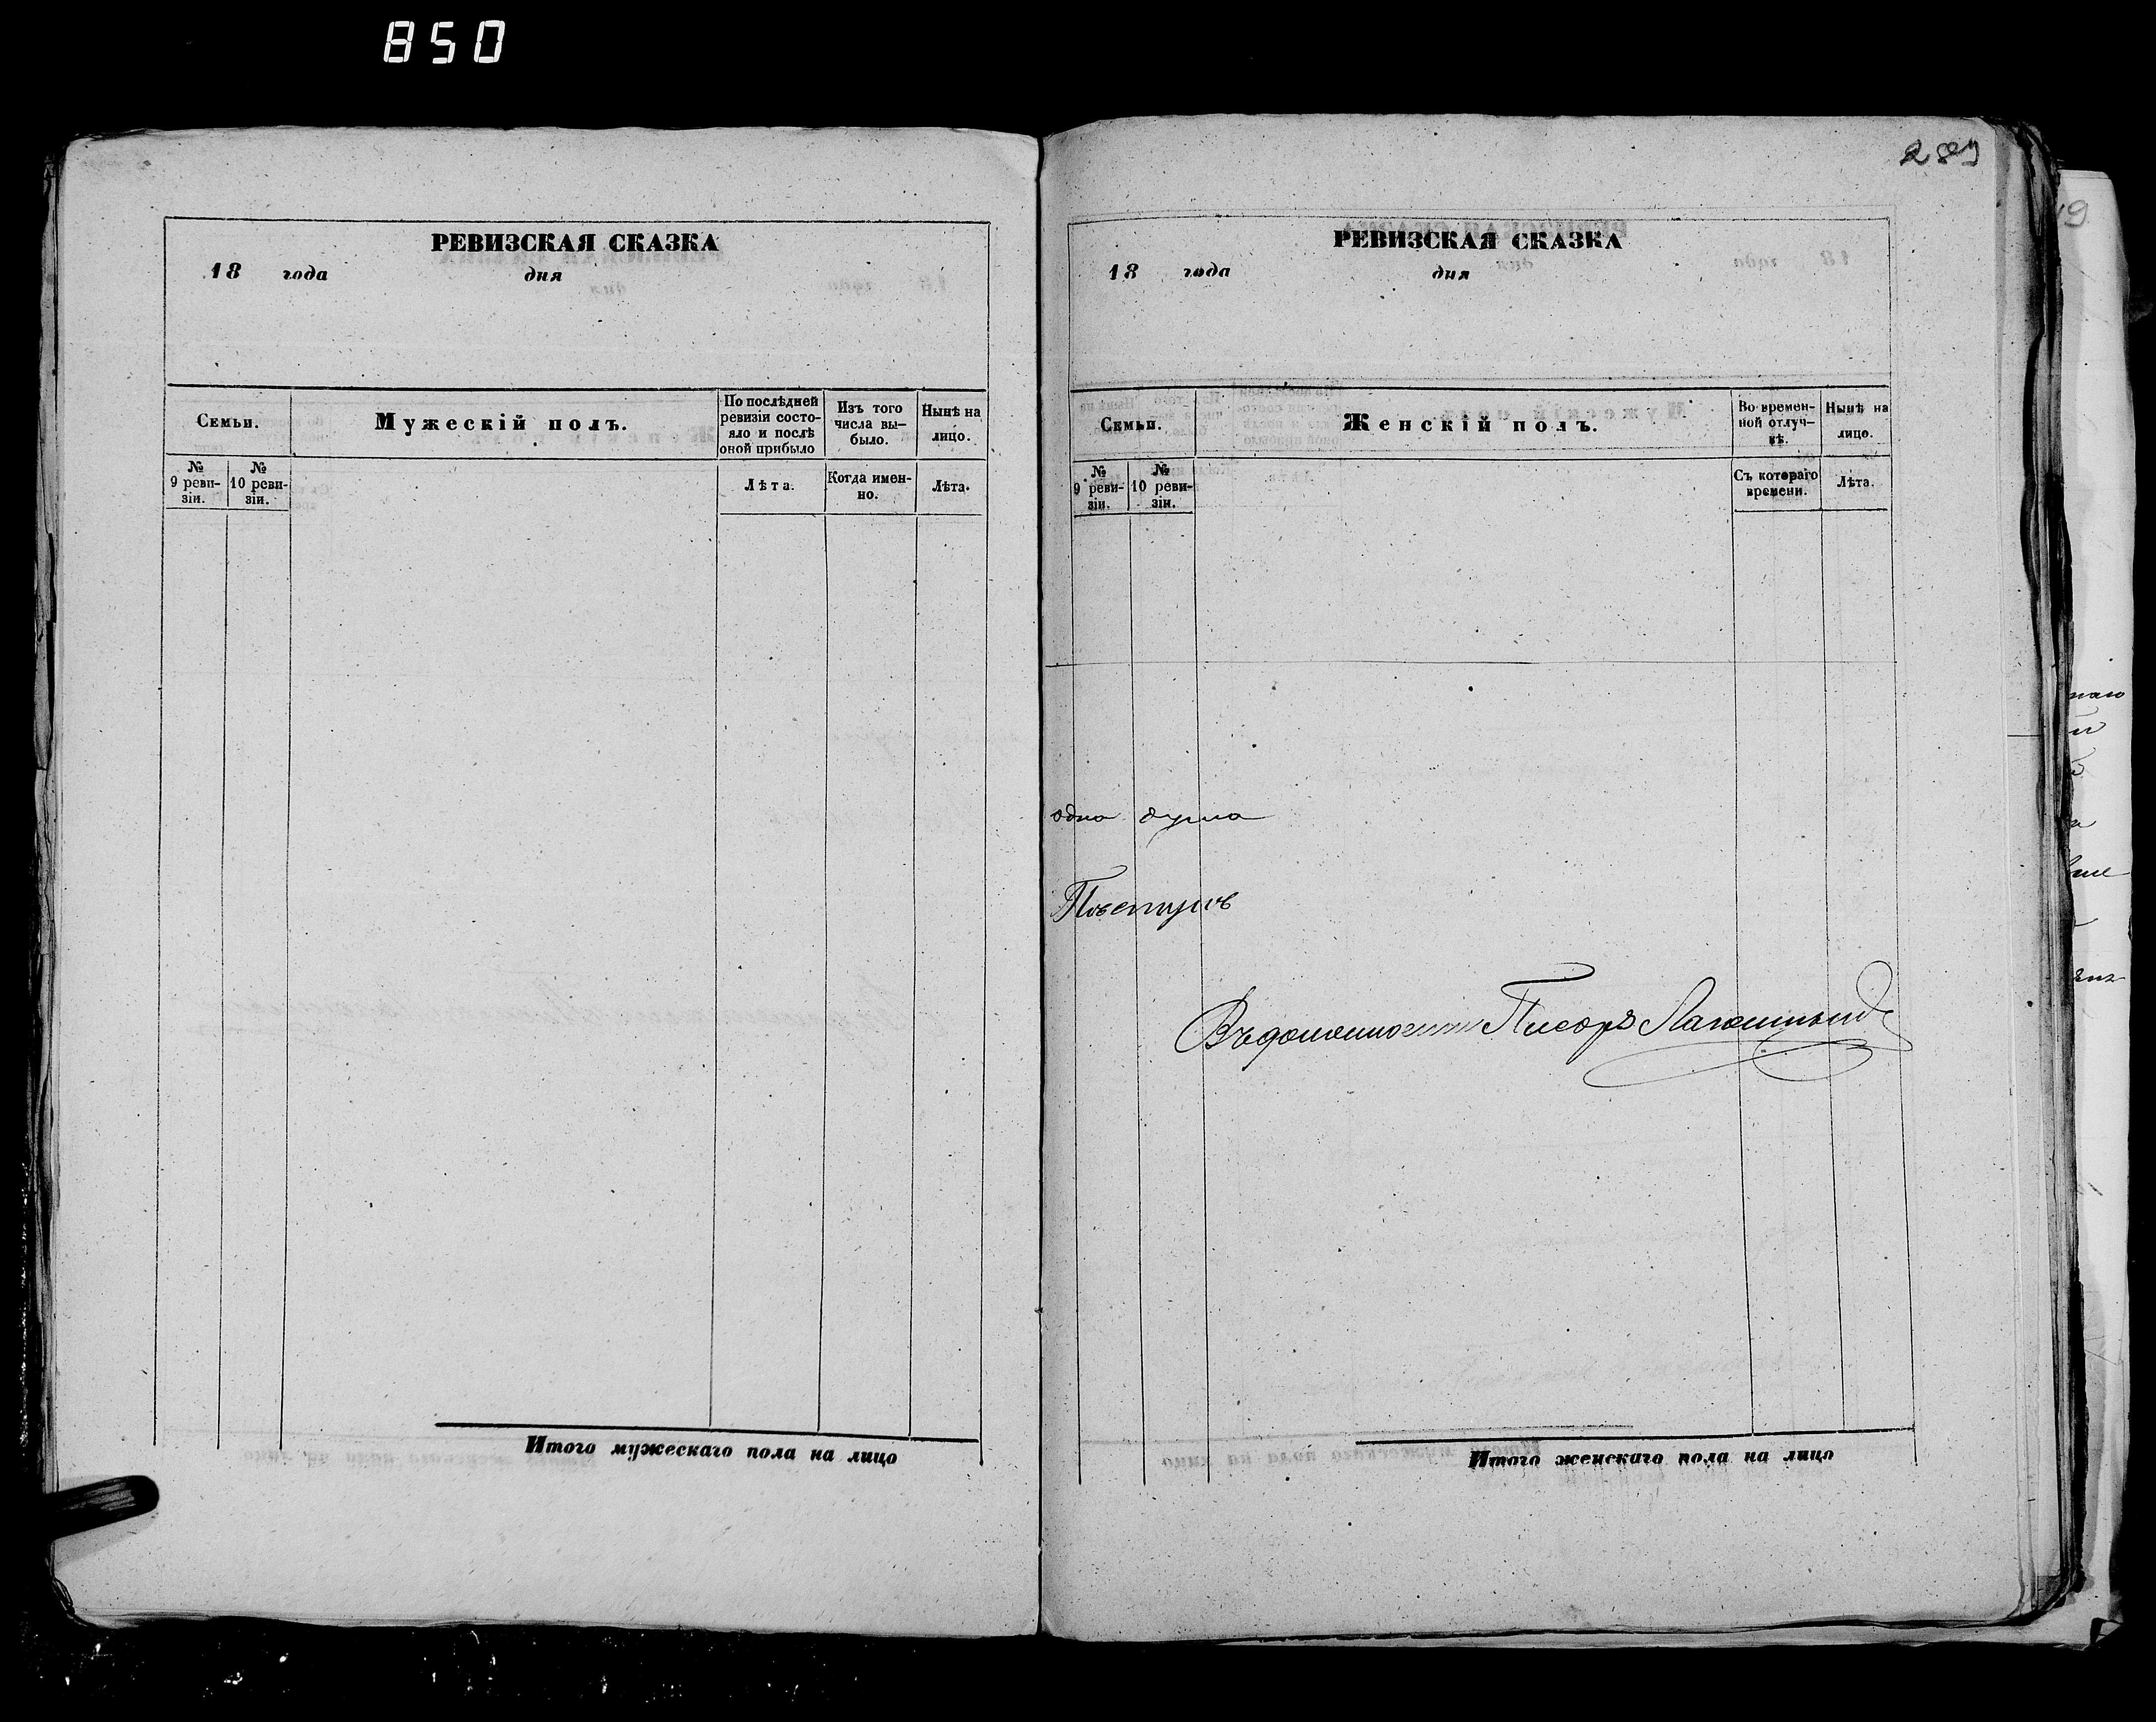 850
РЕВИЗСКАЯ СКАЗКА
18 года дня
Семьи.
Мужескій полъ.
По послѣдней ревизіи состо-
яло и послѣ
оной прибыло
Изъ того
числа вы-
было.
Нынѣ на
лицо.
№
9 реви-
зіи.
№
10 реви-
зіи.
Лѣта.
Когда имен-
но.
Лѣта.
Итого мужескаго пола на лицо
РЕВИЗСКАЯ СКАЗКА
18 года дня
Семьи.
Женскій полъ.
Во времен-
ной отлуч-
кѣ.
Нынѣ на
лицо.
№
9 реви-
зіи.
№
10 реви-
зіи.
Съ котораго
времени.
Лѣта.
одна душа
Писарь
Итого женскаго пола на лицо